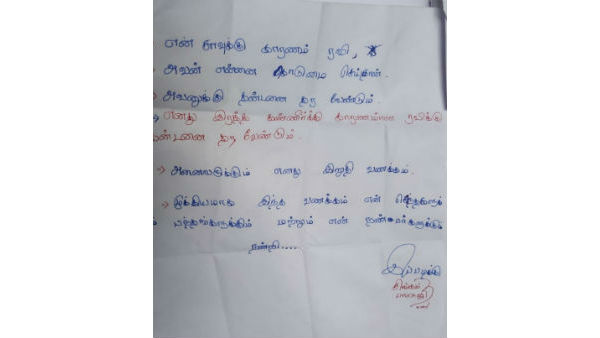 என் சாவுக்கு காரணம் ரவி,
அவன் என்னை கொடுமை செய்தான்.
அவனுக்கு தண்டனை தர வேண்டும்.
எனது இறந்த கண்ணீர்க்கு காரணமான ரவிக்கு
தண்டனை தர வேண்டும்.
அனைவருக்கும் எனது இறுதி வணக்கம்.
முக்கியமாக இந்த வணக்கம் என்
மற்றும் என் நண்பர்களுக்கும்
நன்றி....
இப்படிக்கு